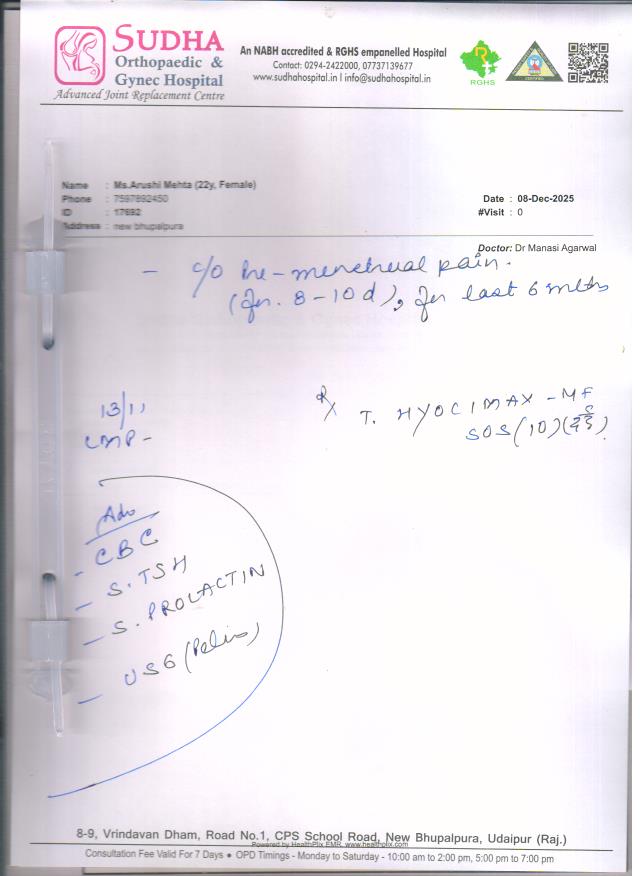 SUDHA
Orthopaedic &
Gynec Hospital
Advanced Joint Replacement Centre
An NABH accredited & RGHS empanelled Hospital
Contact: 0294-2422000, 07737139677
www.sudhahospital.in I info@sudhahospital.in
RGHS
Name : Ms.Arushi Mehta (22y, Female)
Phone : 7597892450
ID : 17692
Address : new bhupalpura
Date : 08-Dec-2025
#Visit : 0
Doctor: Dr Manasi Agarwal
- c/o Pre-menstrual pain.
(for 8-10d), for last 6 mths
13/11
LMP -
Rx T. HYOCIMAX - MF
SOS (10)
Adv
- CBC
- S. TSH
- S. PROLACTIN
- USG (Pelvis)
8-9, Vrindavan Dham, Road No.1, CPS School Road, New Bhupalpura, Udaipur (Raj.)
Powered by HealthPlix EMR. www.healthplix.com
Consultation Fee Valid For 7 Days ● OPD Timings - Monday to Saturday - 10:00 am to 2:00 pm, 5:00 pm to 7:00 pm